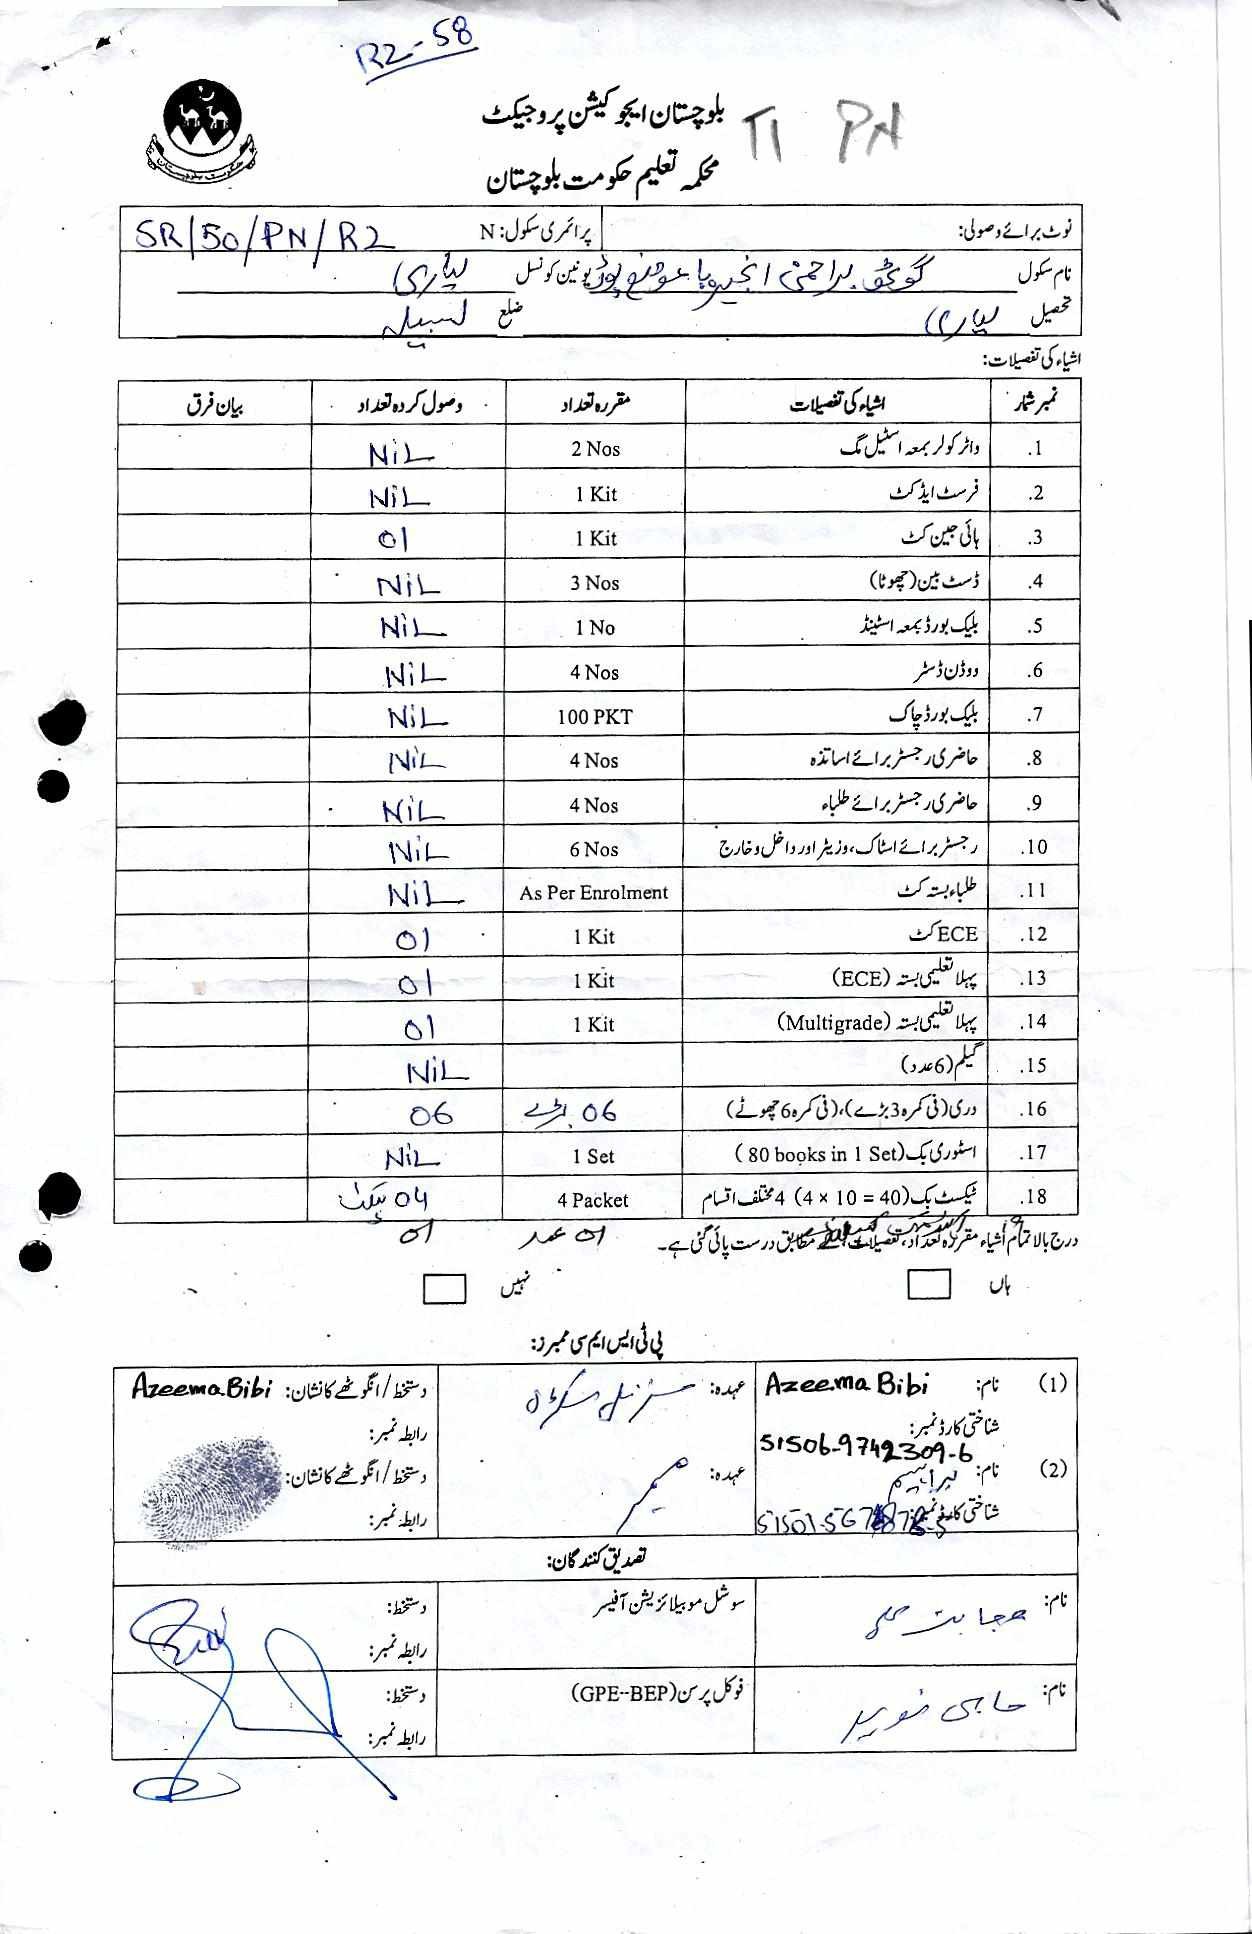 R2-58
بلوچستان ایجوکیشن پروجیکٹ
T1 PN
محکمہ تعلیم حکومت بلوچستان
نوٹ برائے وصولی: پرائمری سکول: N SR/50/PN/R2
نام سکول گوٹھ یونین کونسل لیاری
تحصیل لیاری ضلع لسبیلہ
اشیاء کی تفصیلات:
نمبر شمار اشیاء کی تفصیلات مقررہ تعداد وصول کردہ تعداد بیان فرق
1. واٹر کولر بمعہ اسٹیل مگ 2 Nos NiL
2. فرسٹ ایڈ کٹ 1 Kit NiL
3. ہائی جین کٹ 1 Kit 01
4. ڈسٹ بین (چھوٹا) 3 Nos NiL
5. بلیک بورڈ بمعہ اسٹینڈ 1 No NiL
6. ووڈن ڈسٹر 4 Nos NiL
7. بلیک بورڈ چاک 100 PKT NiL
8. حاضری رجسٹر برائے اساتذہ 4 Nos NiL
9. حاضری رجسٹر برائے طلباء 4 Nos NiL
10. رجسٹر برائے اسٹاک، وزیٹر اور داخل و خارج 6 Nos NiL
11. طلباء بستہ کٹ As Per Enrolment NiL
12. ECE کٹ 1 Kit 01
13. پہلا تعلیمی بستہ (ECE) 1 Kit 01
14. پہلا تعلیمی بستہ (Multigrade) 1 Kit 01
15. گیلم (6 عدد) NiL
16. دری (فی کمرہ 3 بڑے)، (فی کمرہ 6 چھوٹے) 06 بڑے 06
17. اسٹوری بک (80 books in 1 Set) 1 Set NiL
18. ٹیکسٹ بک (4 × 10 = 40) 4 مختلف اقسام 4 Packet 04 پیکٹ
19 01 عدد 01
درج بالا تمام اشیاء مقررہ تعداد، تفصیلات کے مطابق درست پائی گئی ہے۔
ہاں نہیں
پی ٹی ایس ایم سی ممبرز:
(1) نام: Azeema Bibi عہدہ: دستخط/انگوٹھے کا نشان: Azeema Bibi
شناختی کارڈ نمبر: 51506-9742309-6 رابطہ نمبر:
(2) نام: ابراہیم عہدہ: ممبر دستخط/انگوٹھے کا نشان:
شناختی کارڈ نمبر: رابطہ نمبر:
تصدیق کنندگان:
نام: سوشل موبیلائزیشن آفیسر دستخط:
رابطہ نمبر:
نام: حاجی فوکل پرسن (GPE-BEP) دستخط:
رابطہ نمبر: